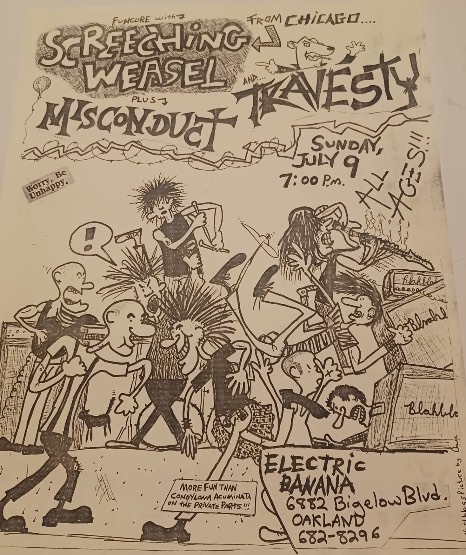 FUNCORE with
FROM CHICAGO....
SCREECHING
WEASEL
AND...
TRAVÉSTY
PLUS
MISCONDUCT
SUNDAY,
JULY 9
7:00 P.M.
ALL
AGES!!!
Worry, Be
Unhappy.
!
Blahblah
Blahblah
Blahblah
ELECTRIC
BANANA
6882 Bigelow Blvd.
OAKLAND
682-8296
MORE FUN THAN
CONDYLOMA ACUMINATA
ON THE PRIVATE PARTS!!!